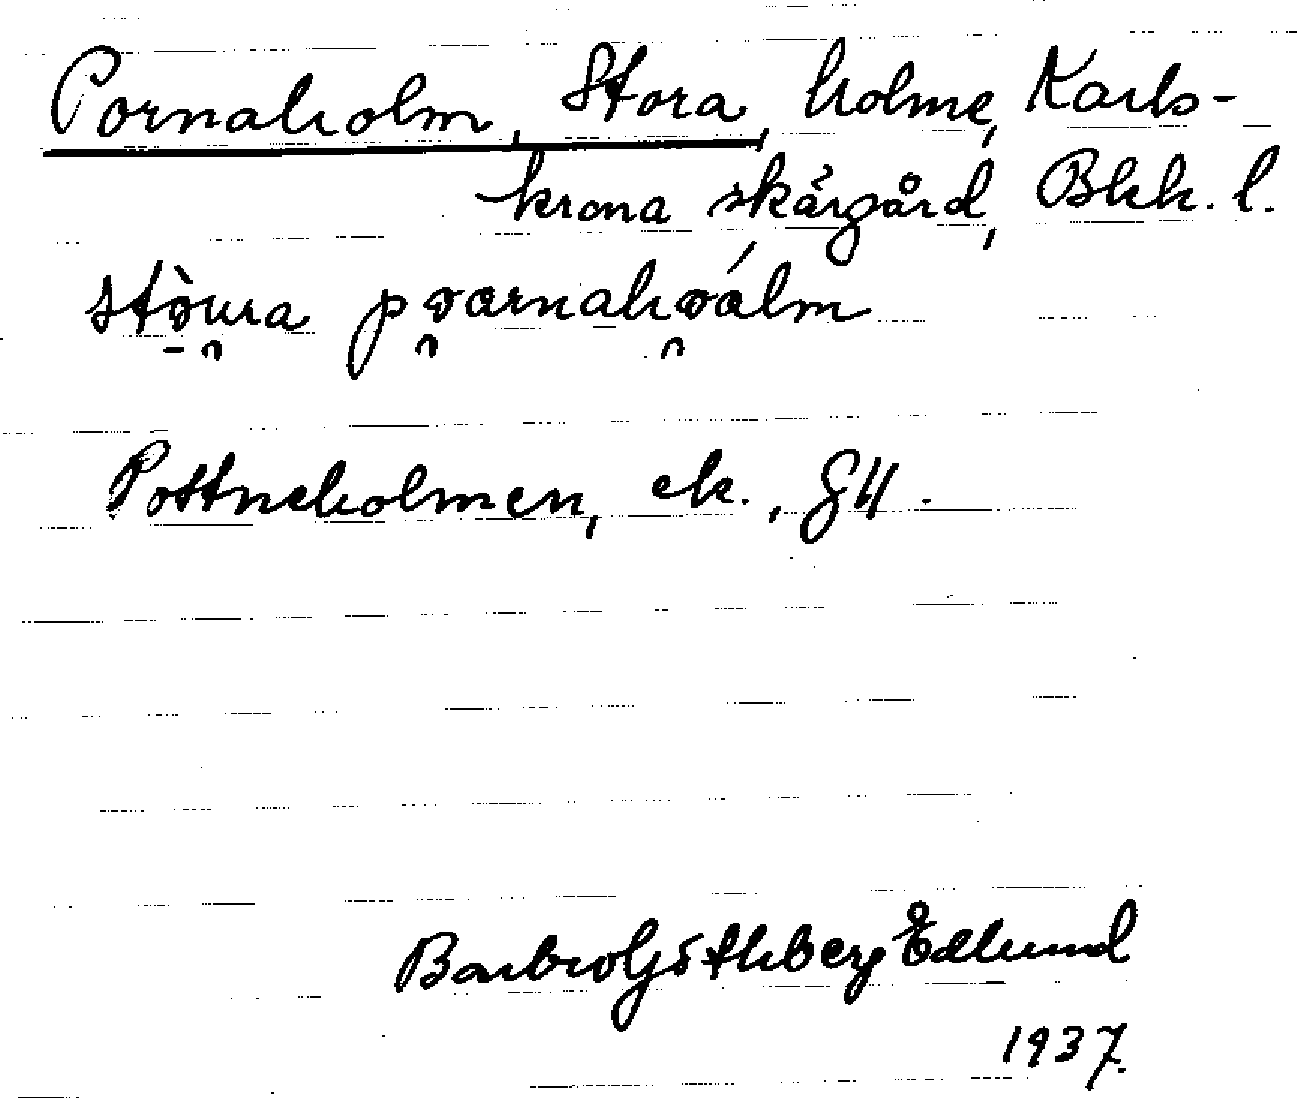 Pornaholm, Stora, holme, Karls-
krona skärgård, Bkk. l.
stòura pornahoálm
Pottneholmen, ek., GK.
Barbro Göthberg Edlund
1937.